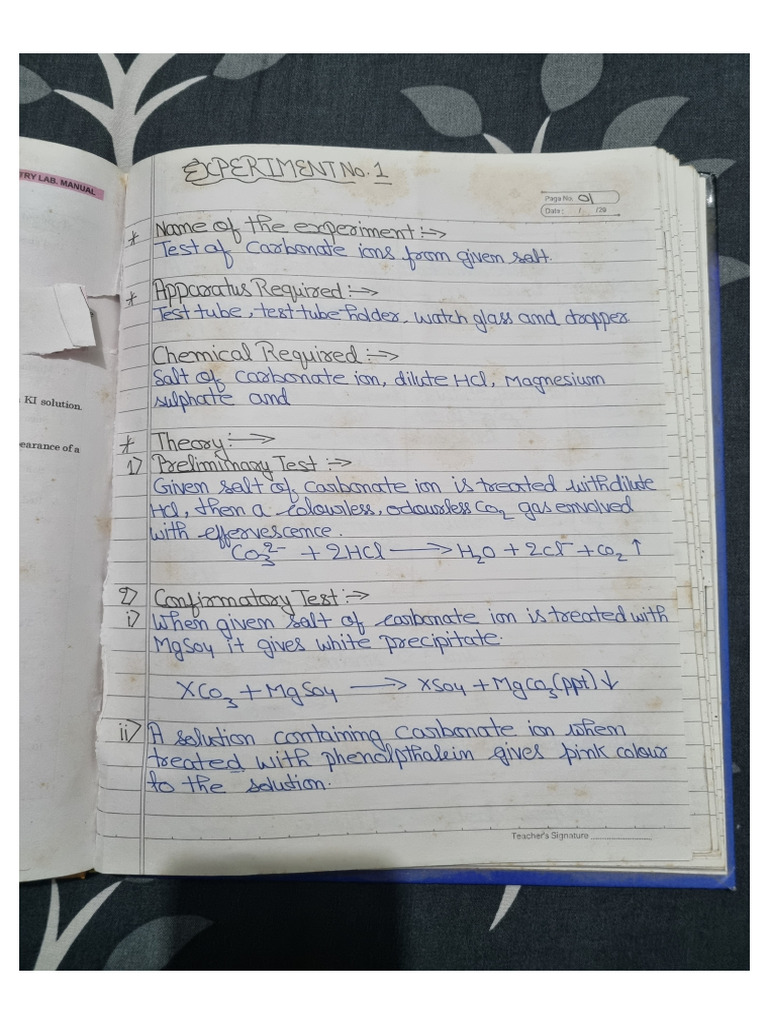 TRY LAB. MANUAL
KI solution.
earance of a
EXPERIMENT No. 1
Page No. 01
Date: / /20
* Name of the experiment:->
Test of Carbonate ions from given salt.
* Apparatus Required:->
Test tube, test tube holder, watch glass and dropper
Chemical Required:->
Salt of carbonate ion, dilute HCl, Magnesium
sulphate and
* Theory:->
1) Preliminary Test:->
Given salt of carbonate ion is treated with dilute
HCl, then a colourless, odourless CO₂ gas envolved
with effervescence.
CO₃²⁻ + 2HCl → H₂O + 2Cl⁻ + CO₂ ↑
2) Confirmatory Test:->
i) When given salt of carbonate ion is treated with
MgSO4 it gives white precipitate.
XCO₃ + MgSO4 → XSO4 + MgCO₃(ppt)↓
ii) A solution containing carbonate ion when
treated with phenolpthalein gives pink colour
to the solution.
Teacher's Signature